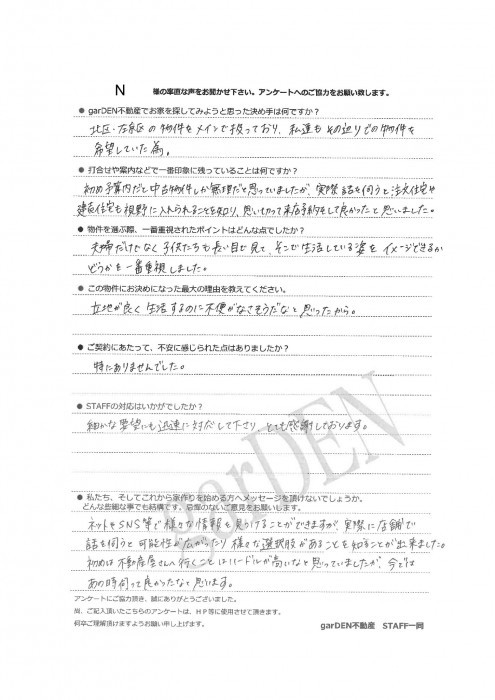 N　様の率直な声をお聞かせ下さい。アンケートへのご協力をお願い致します。
● garDEN不動産でお家を探してみようと思った決め手は何ですか？
北区・左京区の物件をメインで扱っており、私達もその辺りでの物件を
希望していた為。
● 打合せや案内などで一番印象に残っていることは何ですか？
初め予算内だと中古物件しか無理だと思っていましたが、実際話を伺うと注文住宅や
建売住宅も視野に入れられることを知り、思いきって来店予約をして良かったと思いました。
● 物件を選ぶ際、一番重視されたポイントはどんな点でしたか？
夫婦だけでなく子供たちも長い目で見て、そこで生活している姿をイメージできるか
どうかを一番重視しました。
● この物件にお決めになった最大の理由を教えてください。
立地が良く生活するのに不便がなさそうだなと思ったから。
● ご契約にあたって、不安に感じられた点はありましたか？
特にありませんでした。
● STAFFの対応はいかがでしたか？
細かな要望にも迅速に対応して下さり、とても感謝しております。
garDEN
● 私たち、そしてこれから家作りを始める方へメッセージを頂けないでしょうか。
どんな些細な事でも結構です。忌憚のないご意見をお願いします。
ネットやSNS等で様々な情報を見つけることができますが、実際に店舗で
話を伺うと可能性が広がったり様々な選択肢があることを知ることが出来ました。
初めは不動産屋さんへ行くことはハードルが高いなと思っていましたが、今では
あの時伺って良かったなと思います。
アンケートにご協力頂き、誠にありがとうございました。
尚、ご記入頂いたこちらのアンケートは、HP等に使用させて頂きます。
何卒ご理解頂けますようお願い申し上げます。
garDEN不動産　STAFF一同